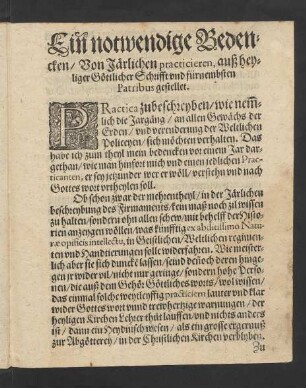 Ein notwendige Beden-
cken / Von Järlichen practicieren, auß hey-
liger Göttlicher Schrifft vnd fürnembsten
Patribus gestellet.
PRactica zubeschreyben / wie nem̃-
lich die Jargäng / an allen Gewächs der
Erden / vnd verenderung der Weltlichen
Policeyen / sich möchten verhalten. Das
habe ich zum theyl mein bedencken vor einem Jar dar-
gethan / wie man hinfort mich vnd einen jedlichen Prac-
ticanten, er sey jetzunder wer er wöll / verstehn vnd nach
Gottes wort vrtheylen soll.
Ob schon zwar der mehrentheyl / in der Järlichen
beschreybung des Firmaments / kein maß noch zil wissen
zu halten / sondern ohn allen schew / mit behelff der Histo-
rien anzeygen wöllen / was künfftig ex abditissimo Natu-
ræ opificis intellectu, in Geistlichen / Weltlichen regimen-
ten vnd Handtierungen solle widerfahren. Wie meister-
lich aber sie sich dunckt lassen / seind dennoch deren hinge-
gen jr wider vil / nicht nur geringe / sondern hohe Perso-
nen / die auß dem Gehör Göttliches worts / wol wissen /
das einmal solche weytleyffig practicirn lauter vnd klar
wider Gottes wort vnnd trewhertzige warnungen / der
heyligen Kirchen Lehrer thüt lauffen / vnd nichts anders
ist / dann ein Heydnisch wesen / als ein grosse ergernuß
zur Abgötterey / in der Christlichen Kirchen verblyben.
Zu